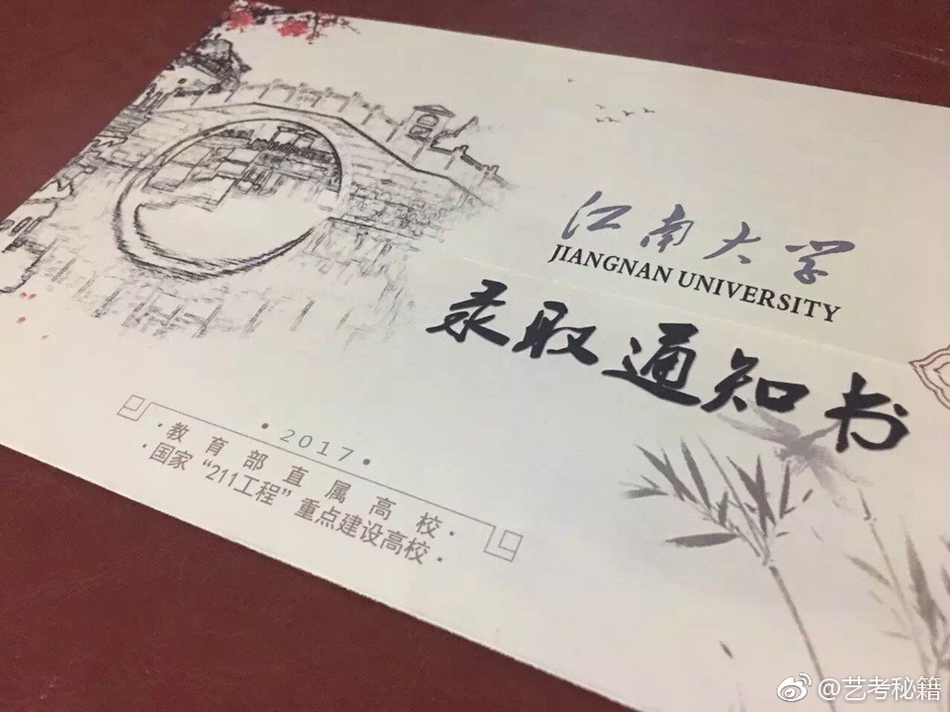 江南大学
JIANGNAN UNIVERSITY
录取通知书
·2017·
·教育部直属高校·
·国家“211工程”重点建设高校·
@艺考秘籍